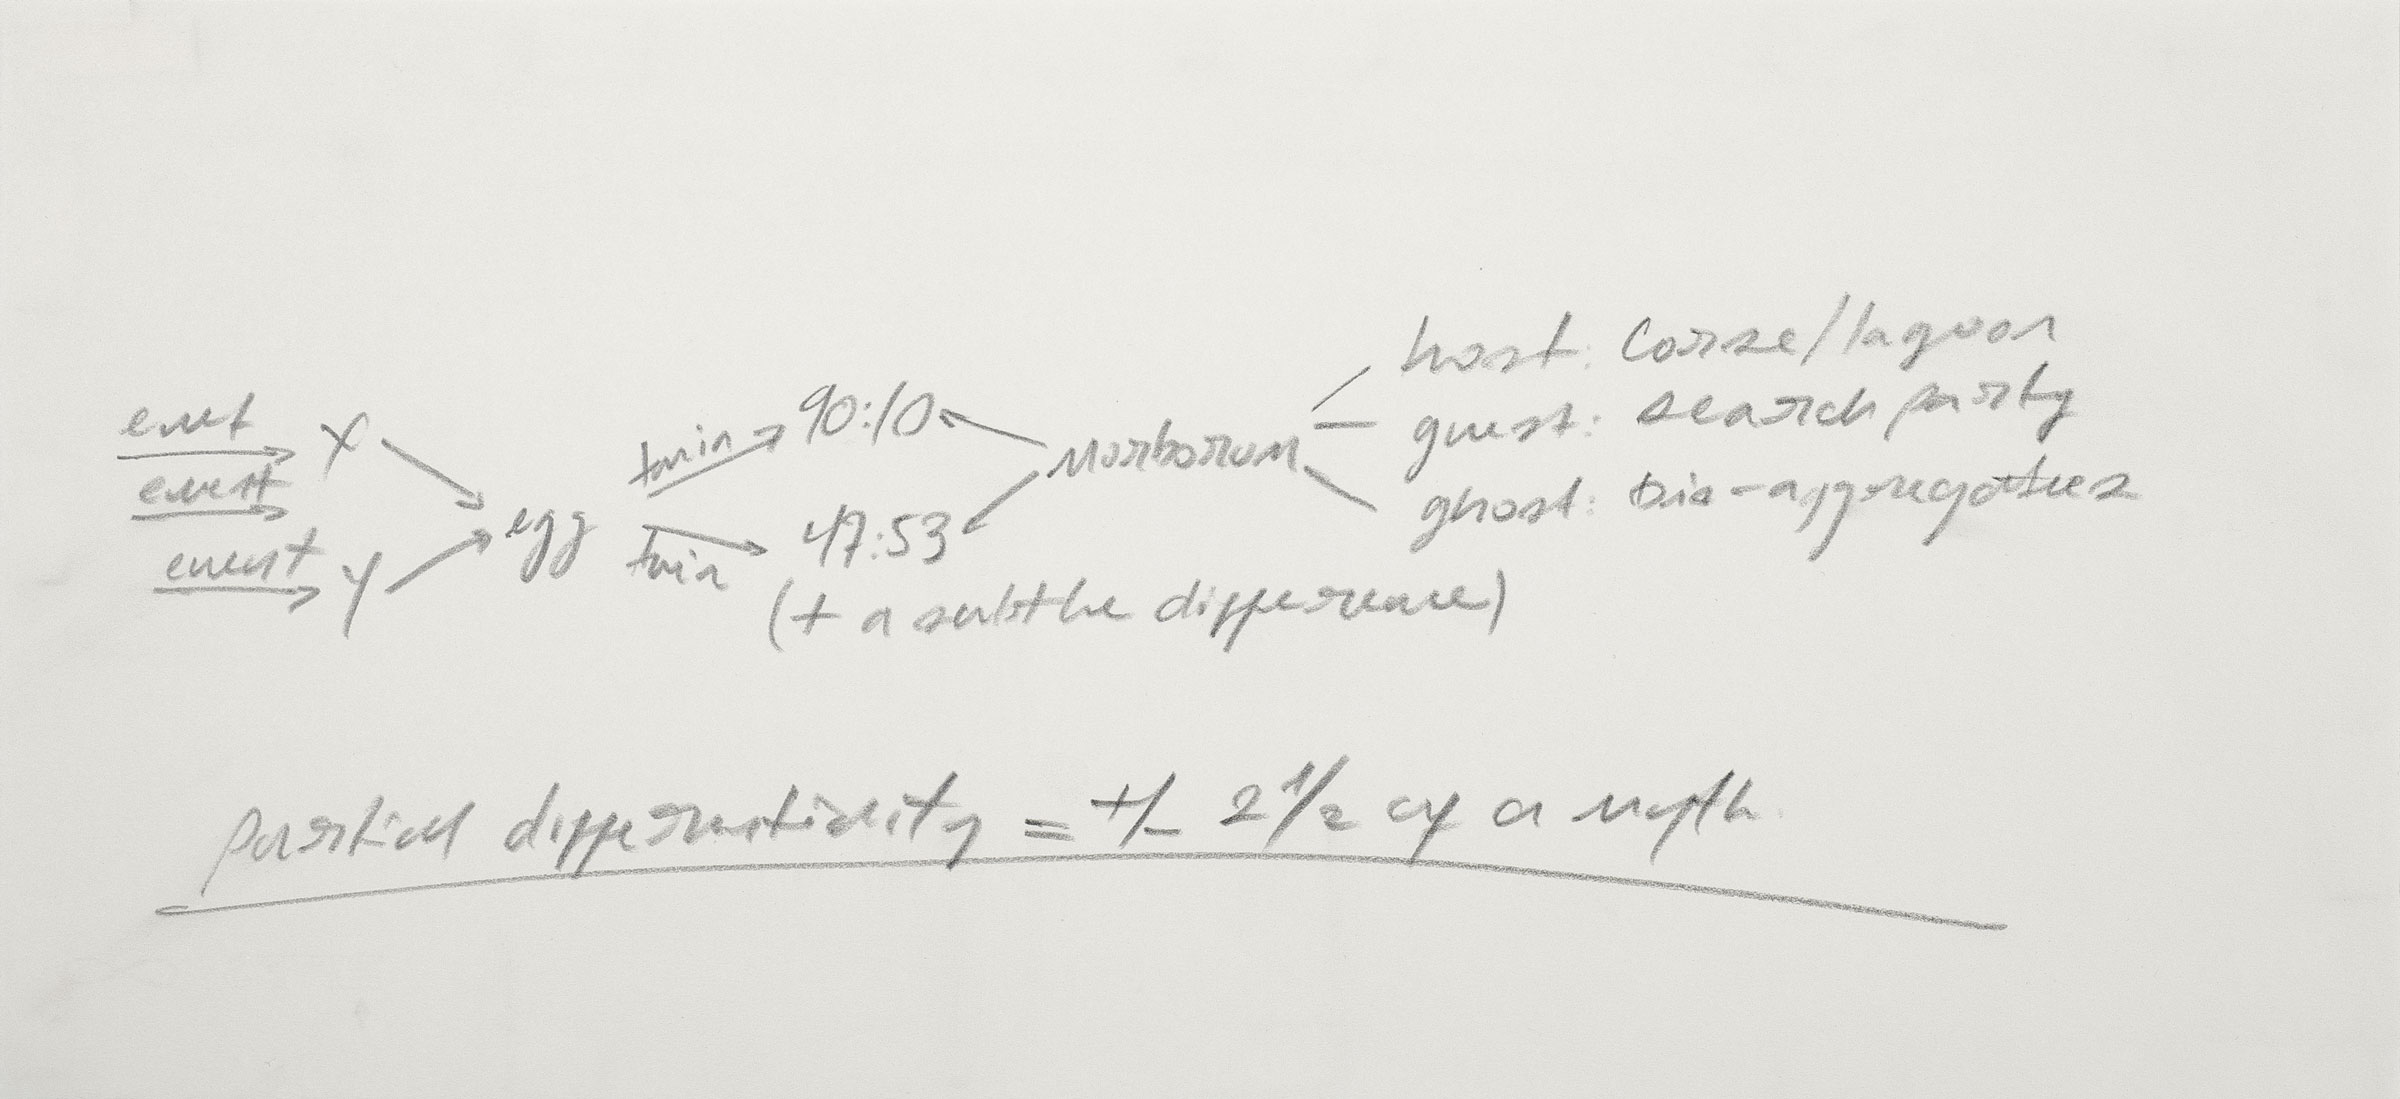 event X
event
event Y
egg
twin 90:10
twin 47:53
(+ a subtle difference)
Morborum
host: Corse/lagoon
guest: search party
ghost: Dis-aggregates
partial differentiality = +/- 2 1/2 of a myth